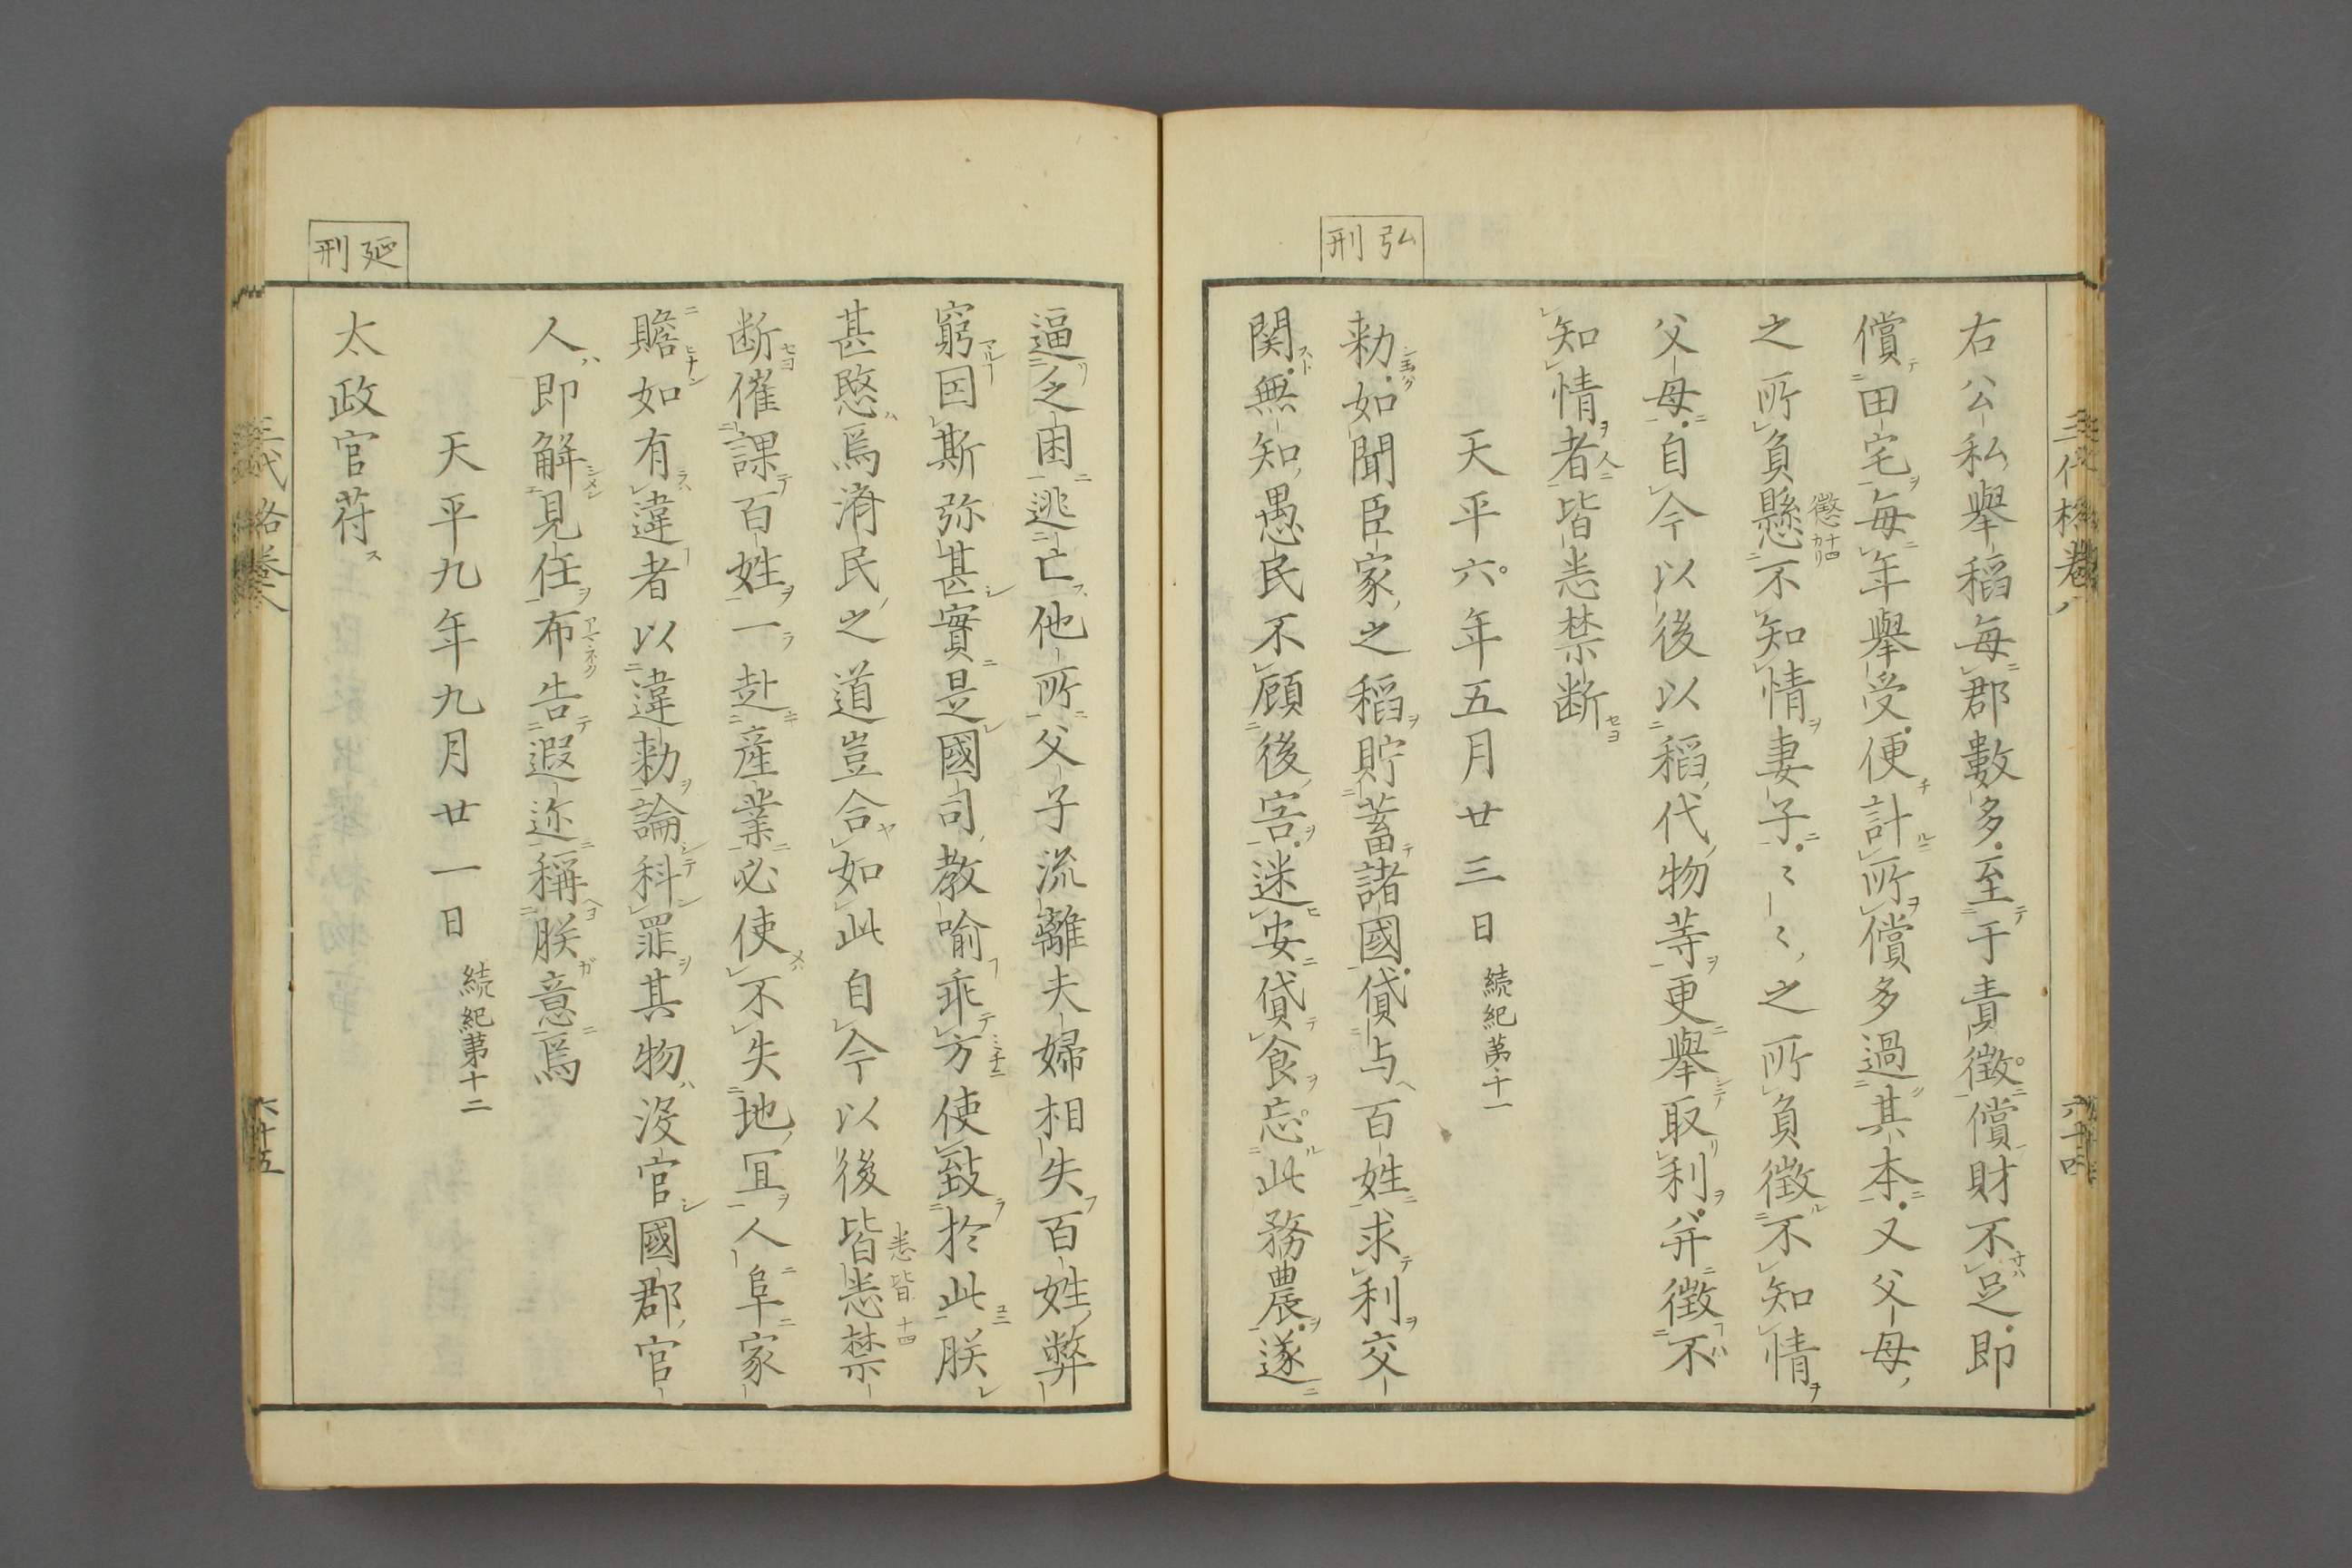 三代格巻八
六十四
右公私舉稻每郡數多至于責徵償財不足即
償田宅每年舉受便計所償多過其本又父母
之所負懸不知情妻子〻〻之所負徵不知情
父母自今以後以稻代物等更舉取利并徵不
知情者皆悉禁断
天平六年五月廿三日 続紀第十一
弘刑
勅如聞臣家之稻貯蓄諸國貸与百姓求利交
関無知愚民不顧後害迷安貸食忘此務農遂
逼之困逃亡他所父子流離夫婦相失百姓弊
窮因斯弥甚實是國司教喻乖方使致於此朕
甚愍焉濟民之道豈合如此自今以後皆悉禁
悉皆 十四
断催課百姓一赴産業必使不失地宜人阜家
贍如有違者以違勅論科罪其物沒官國郡官
人即解見任布告遐迩稱朕意焉
天平九年九月廿一日 続紀第十二
延刑
太政官苻
六十五